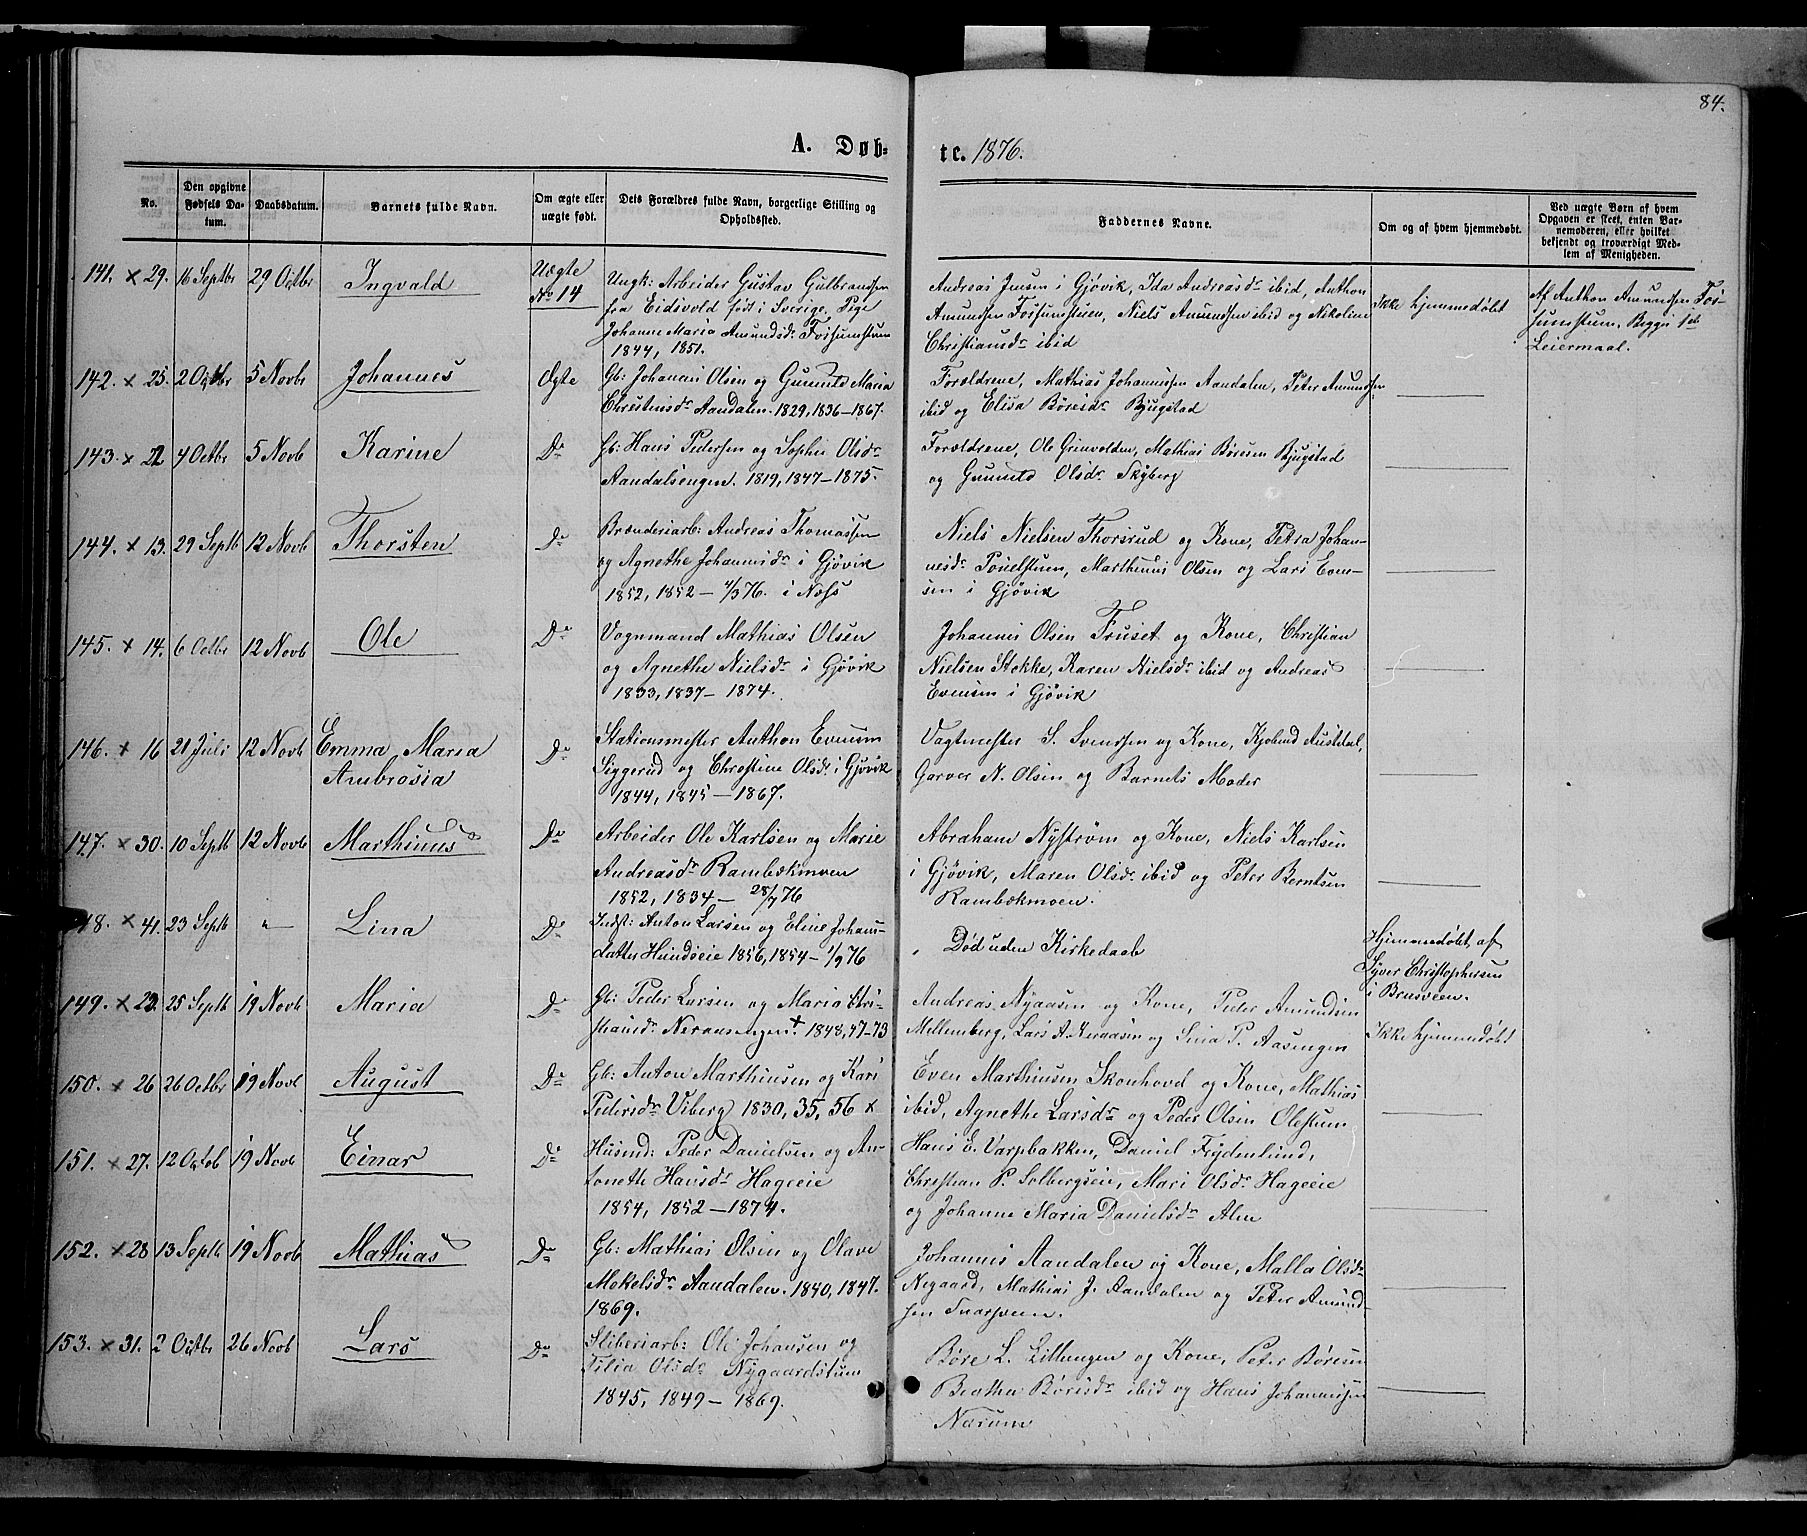 84.
A. Døb=
te. 1876.
No.
Den opgivne Fødsels Datum.
Daabsdatum.
Barnets fulde Navn.
Om ægte eller uægte født.
Dets Forældres fulde Navn, borgerlige Stilling og Opholdssted.
Faddernes Navne.
Om og af hvem hjemmedøbt.
Ved uægte Børn af hvem Opgaven er skeet, enten Barnemoderen, eller hvilket bekjendt og troværdigt Medlem af Menigheden.
141. x 29. 16 Septbr 29 Octbr Ingvald Uægte No 14
Ungk: Arbeider Gustav Gulbrandsen
fra Eidsvold født i Sverige, Pige
Johanne Maria Amundsdr Fossumstuen
1844, 1851.
Andreas Jensen i Gjøvik, Ida Andreasdr ibid, Anthon
Amundsen Fossumstuen, Niels Amundsen ibid og Nikoline
Christiansdr ibid
Ikke hjemmedøbt
Af Anthon Amundsen Fos-
sumstuen. Begges 1ste
Leiermaal.
142. x 25. 2 Octbr 5 Novbr Johannes Ægte
Gb: Johannes Olsen og Gunild Maria
Christensdr Aandalen. 1829, 1836-1867.
Forældrene, Mathias Johannessen Aandalen, Peter Amundsen
ibid og Elisa Børesdr Bjugstad
143. x 22 4 Octbr 5 Novb Karine Do
Gb: Hans Pedersen og Sophie Olsdr
Aandalsengen. 1819, 1847-1875.
Forældrene, Ole Grinvolden, Mathias Børesen Bjugstad
og Gunild Olsdr Skyberg
144. x 13. 29 Septb 12 Novb Thorsten Do
Brænderiarb: Andreas Thomassen
og Agnethe Johannesdr i Gjøvik
1852, 1852 - 4/3 76. i Næss
Niels Nielsen Thorsrud og Kone, Petra Johan-
nesdr Poulstuen, Marthinus Olsen og Lars Even-
sen i Gjøvik
145. x 14. 6 Octbr 12 Novb Ole Do
Vognmand Mathias Olsen
og Agnethe Nielsdr i Gjøvik
1833, 1837- 1874.
Johannes Olsen Fruset og Kone, Christian
Nielsen Stokke, Karen Nielsdr ibid og Andreas
Evensen i Gjøvik
146. x 16 21 Juli 12 Novb Emma Maria
Ambrosia Do
Stationsmester Anthon Evensen
Siggerud og Christine Olsdr i Gjøvik
1844, 1845 - 1867.
Vagtmester S. Svenssen og Kone, Kjøbmd Austdal,
Garver N. Olsen og Barnets Moder
147. x 30. 10 Septb 12 Novb Marthinus Do
Arbeider Ole Karlsen og Marie
Andreasdr Rambækmoen
1852, 1834 - 28/7 76
Abraham Nystrøm og Kone, Niels Karlsen
i Gjøvik, Maren Olsdr ibid og Peter Berntsen
Rambækmoen.
148. x 41. 23 Septb " Lina Do
Indst: Anton Larsen og Eline Johans-
datter Hundseie 1856, 1854 - 1/9 76
Død uden Kirkedaab
Hjemmedøbt af
Syver Christophersen
i Brusveen.
149. x 22. 25 Septb 19 Novb Maria Do
Gb: Peder Larsen og Maria Chri-
stiansdr Neraasengen + 1848, 47-73
Andreas Nyaasen og Kone, Peder Amundsen
Mellemberg, Lars A. Neraasen og Lina P. Aasengen
Ikke hjemmedøbt
150. x 26 26 Octbr 19 Novb August Do
Gb: Anton Marthinsen og Kari
Pedersdr Viberg 1830, 35, 56 x
Even Marthinsen Skonhovd og Kone, Mathias
ibid, Agnethe Larsdr og Peder Olsen Olestuen
151. x 27. 12 Octob 19 Novb Einar Do
Husmd: Peder Danielsen og An-
tonette Hansdr Hageeie
1854, 1852 - 1874.
Hans E. Varpbakken, Daniel Frydenlund,
Christian P. Solbergseie, Mari Olsdr Hageeie
og Johanne Maria Danielsdr Alm
152. x 28 13 Septb 19 Novb Mathias Do
Gb: Mathias Olsen og Olave
Mokelsdr Aandalen. 1840, 1847.
1869.
Johannes Aandalen og Kone, Malla Olsdr
Nygaard, Mathias J. Aandalen og Peter Amund-
sen Snarsveen.
153. x 31. 2 Octbr 26 Novb Lars Do
Sliberiarb: Ole Johansen og
Olsdr Nygaardstuen
1845, 1849 - 1869.
Børe L. Lillengen og Kone, Peter Børesen
Berthe Børesdr ibid og Hans Johannessen
Narum